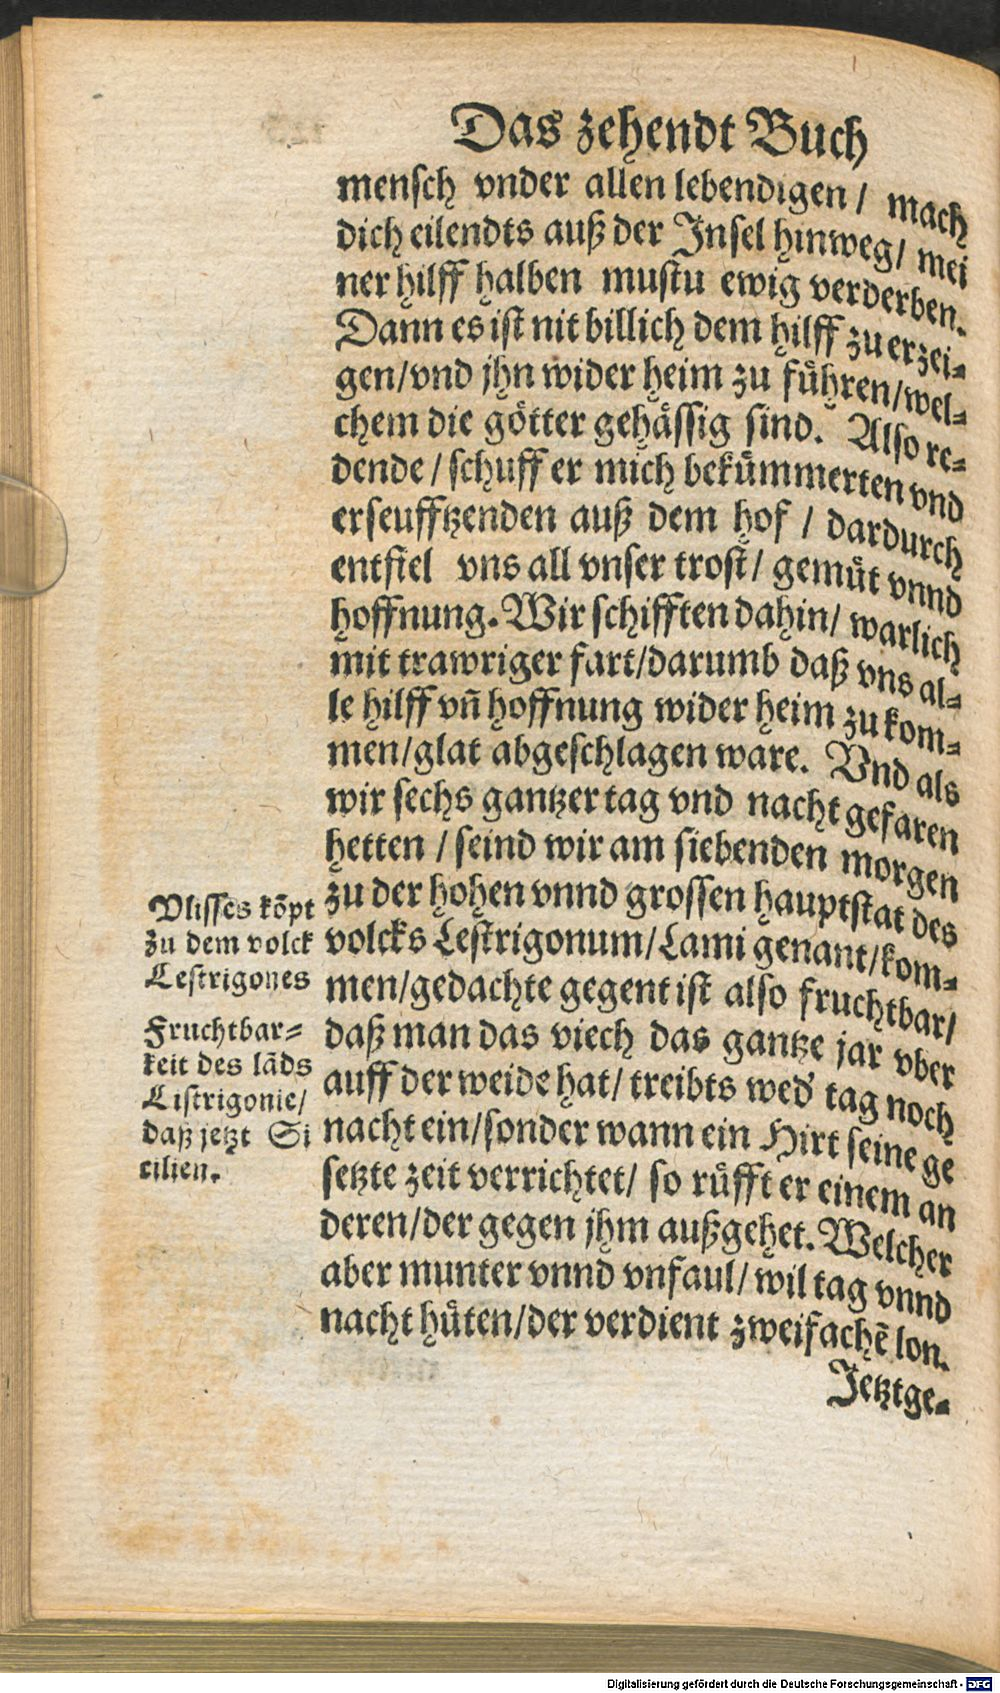 Das zehendt Buch
mensch vnder allen lebendigen / mach
dich eilendts auß der Insel hinweg / mei
ner hilff halben mustu ewig verderben.
Dann es ist nit billich dem hilff zu erzei-
gen/vnd jhn wider heim zu fuͤhren/wel-
chem die goͤtter gehaͤssig sind. Also re-
dende / schuff er mich bekuͤmmerten vnd
erseufftzenden auß dem hof / dardurch
entfiel vns all vnser trost / gemuͤt vnnd
hoffnung. Wir schifften dahin / warlich
mit trawriger fart/darumb daß vns al-
le hilff vñ hoffnung wider heim zu kom-
men/glat abgeschlagen ware. Vnd als
wir sechs gantzer tag vnd nacht gefaren
hetten / seind wir am siebenden morgen
zu der hohen vnnd grossen hauptstat des
volcks Lestrigonum/Lami genant/kom-
men/gedachte gegent ist also fruchtbar/
daß man das viech das gantze jar vber
auff der weide hat / treibts wed' tag noch
nacht ein/sonder wann ein Hirt seine ge
setzte zeit verrichtet / so ruͤfft er einem an
deren/der gegen jhm außgehet. Welcher
aber munter vnnd vnfaul / wil tag vnnd
nacht huͤten/der verdient zweifachē lon.
Jetztge-
Vlisses kōpt
zu dem volck
Lestrigones
Fruchtbar-
keit des lāds
Listrigonie/
daß jetzt Si
cilien.
Digitalisierung gefördert durch die Deutsche Forschungsgemeinschaft - DFG